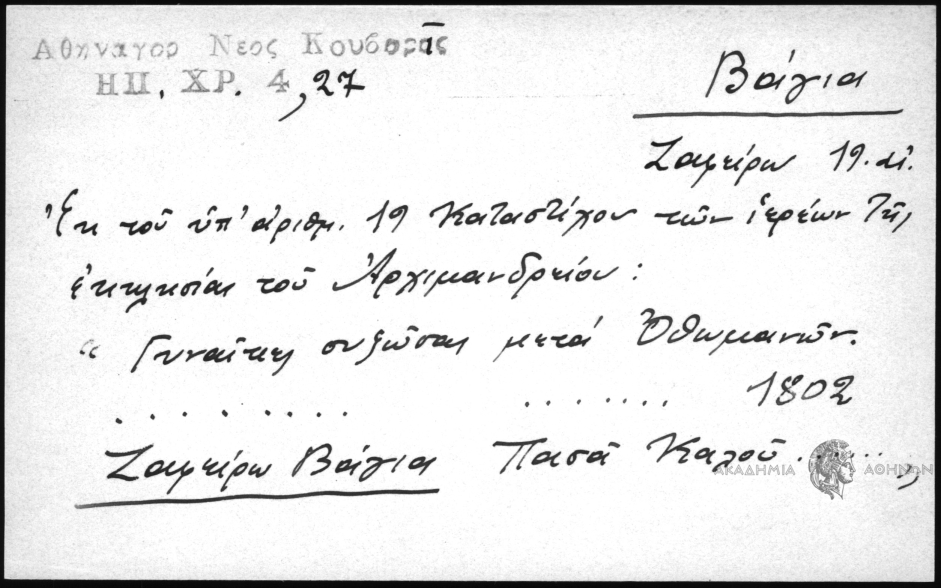 Αθηναγορ Νεος Κουβαρᾶς
ΗΠ. ΧΡ. 4, 27
Βάγια
Ζαφείρω 19. αἰ.
Ἐκ τοῦ ὑπ' ἀριθμ. 19 Καταστίχου τῶν ἱερέων τῆς
ἐκκλησίας τοῦ Ἀρχιμανδρείου :
" Γυναῖκες συζῶσαι μετά Ὀθωμανῶν.
......... ....... 1802
Ζαφείρω Βάγια Πασᾶ Καλοῦ ......,
ΑΚΑΔΗΜΙΑ ΑΘΗΝΩΝ